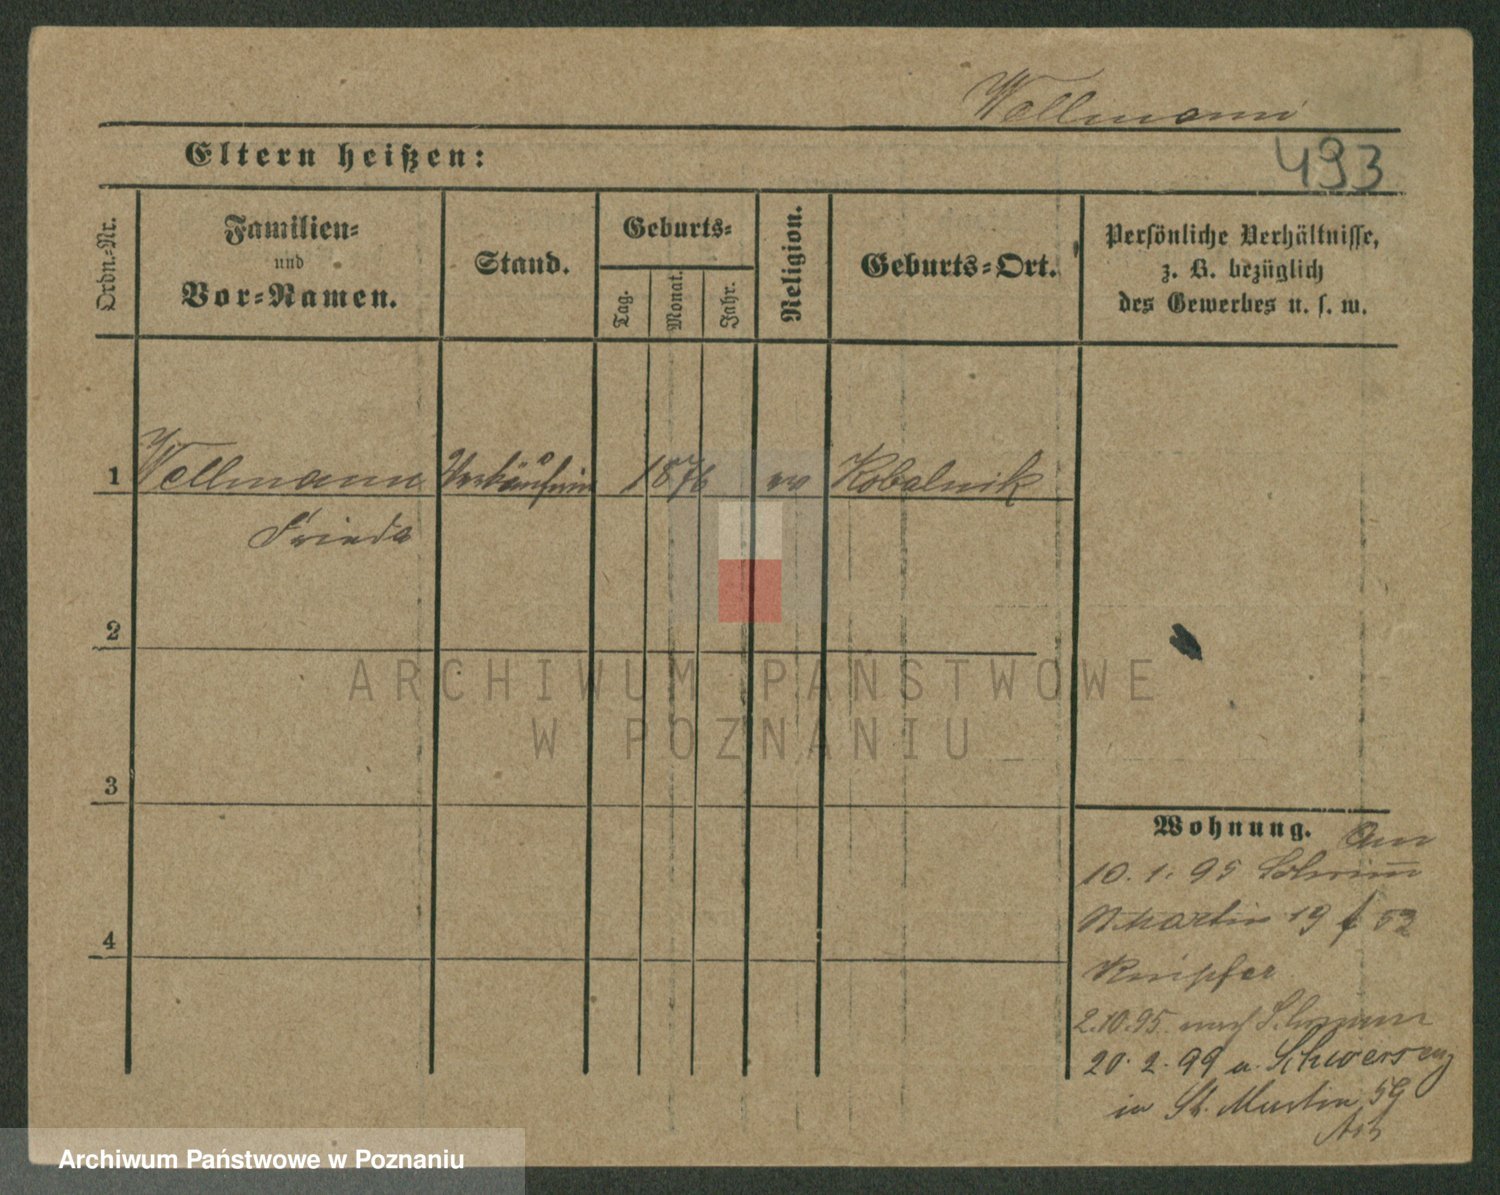 Wollmann
Eltern heißen:
493
Ordn.-Nr.
Familien-
und
Vor-Namen.
Stand.
Geburts-
Tag.
Monat.
Jahr.
Religion.
Geburts-Ort.
Persönliche Verhältnisse,
z. B. bezüglich
des Gewerbes u. s. w.
1 Wollmann Verkäuferin 1876 ev Kobelnik
Frieda
2
3
4
Wohnung.
10. 1. 95 Schrimm
Martin 19
2.10.95. nach Schrimm
20. 2. 99 a. Schwersenz
in St. Martin 59
ARCHIWUM PAŃSTWOWE
W POZNANIU
Archiwum Państwowe w Poznaniu